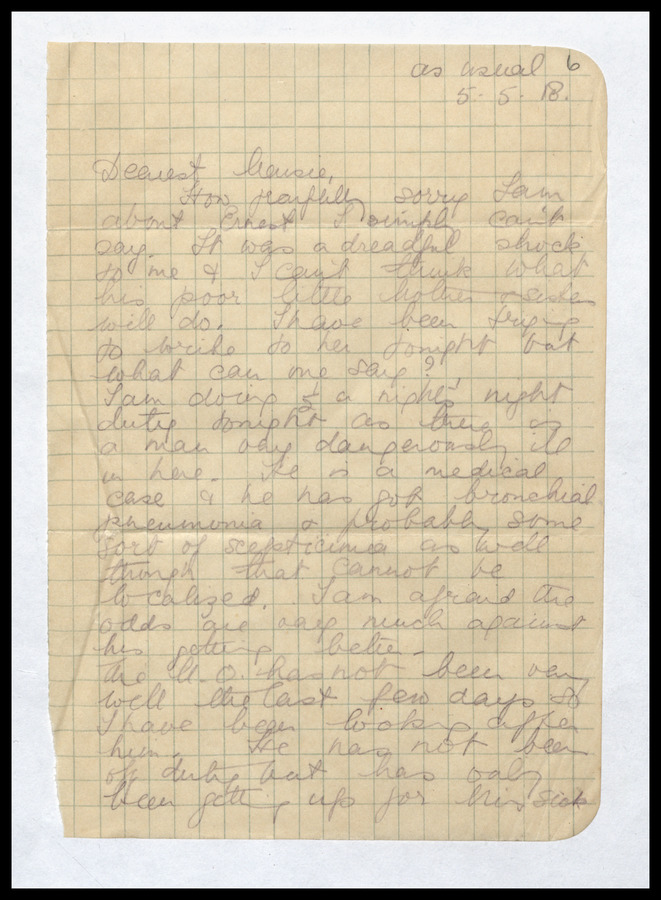 as usual 6
5. 5. 18.
Dearest Mousie,
How fearfully sorry I am
about Ernest I simply can't
say. It was a dreadful shock
to me & I can't think what
his poor little mother & sister
will do. I have been trying
to write to her tonight but
what can one say?
I am doing ½ a nights' night
duty tonight as there is
a man very dangerously ill
in here. He is a medical
case & he has got bronchial
pneumonia & probably some
sort of scepticimia as well
though that cannot be
localized. I am afraid the
odds are very much against
his getting better.
The M.O. has not been very
well the last few days so
I have been looking after
him. He has not been
off duty but has only
been getting up for his sick